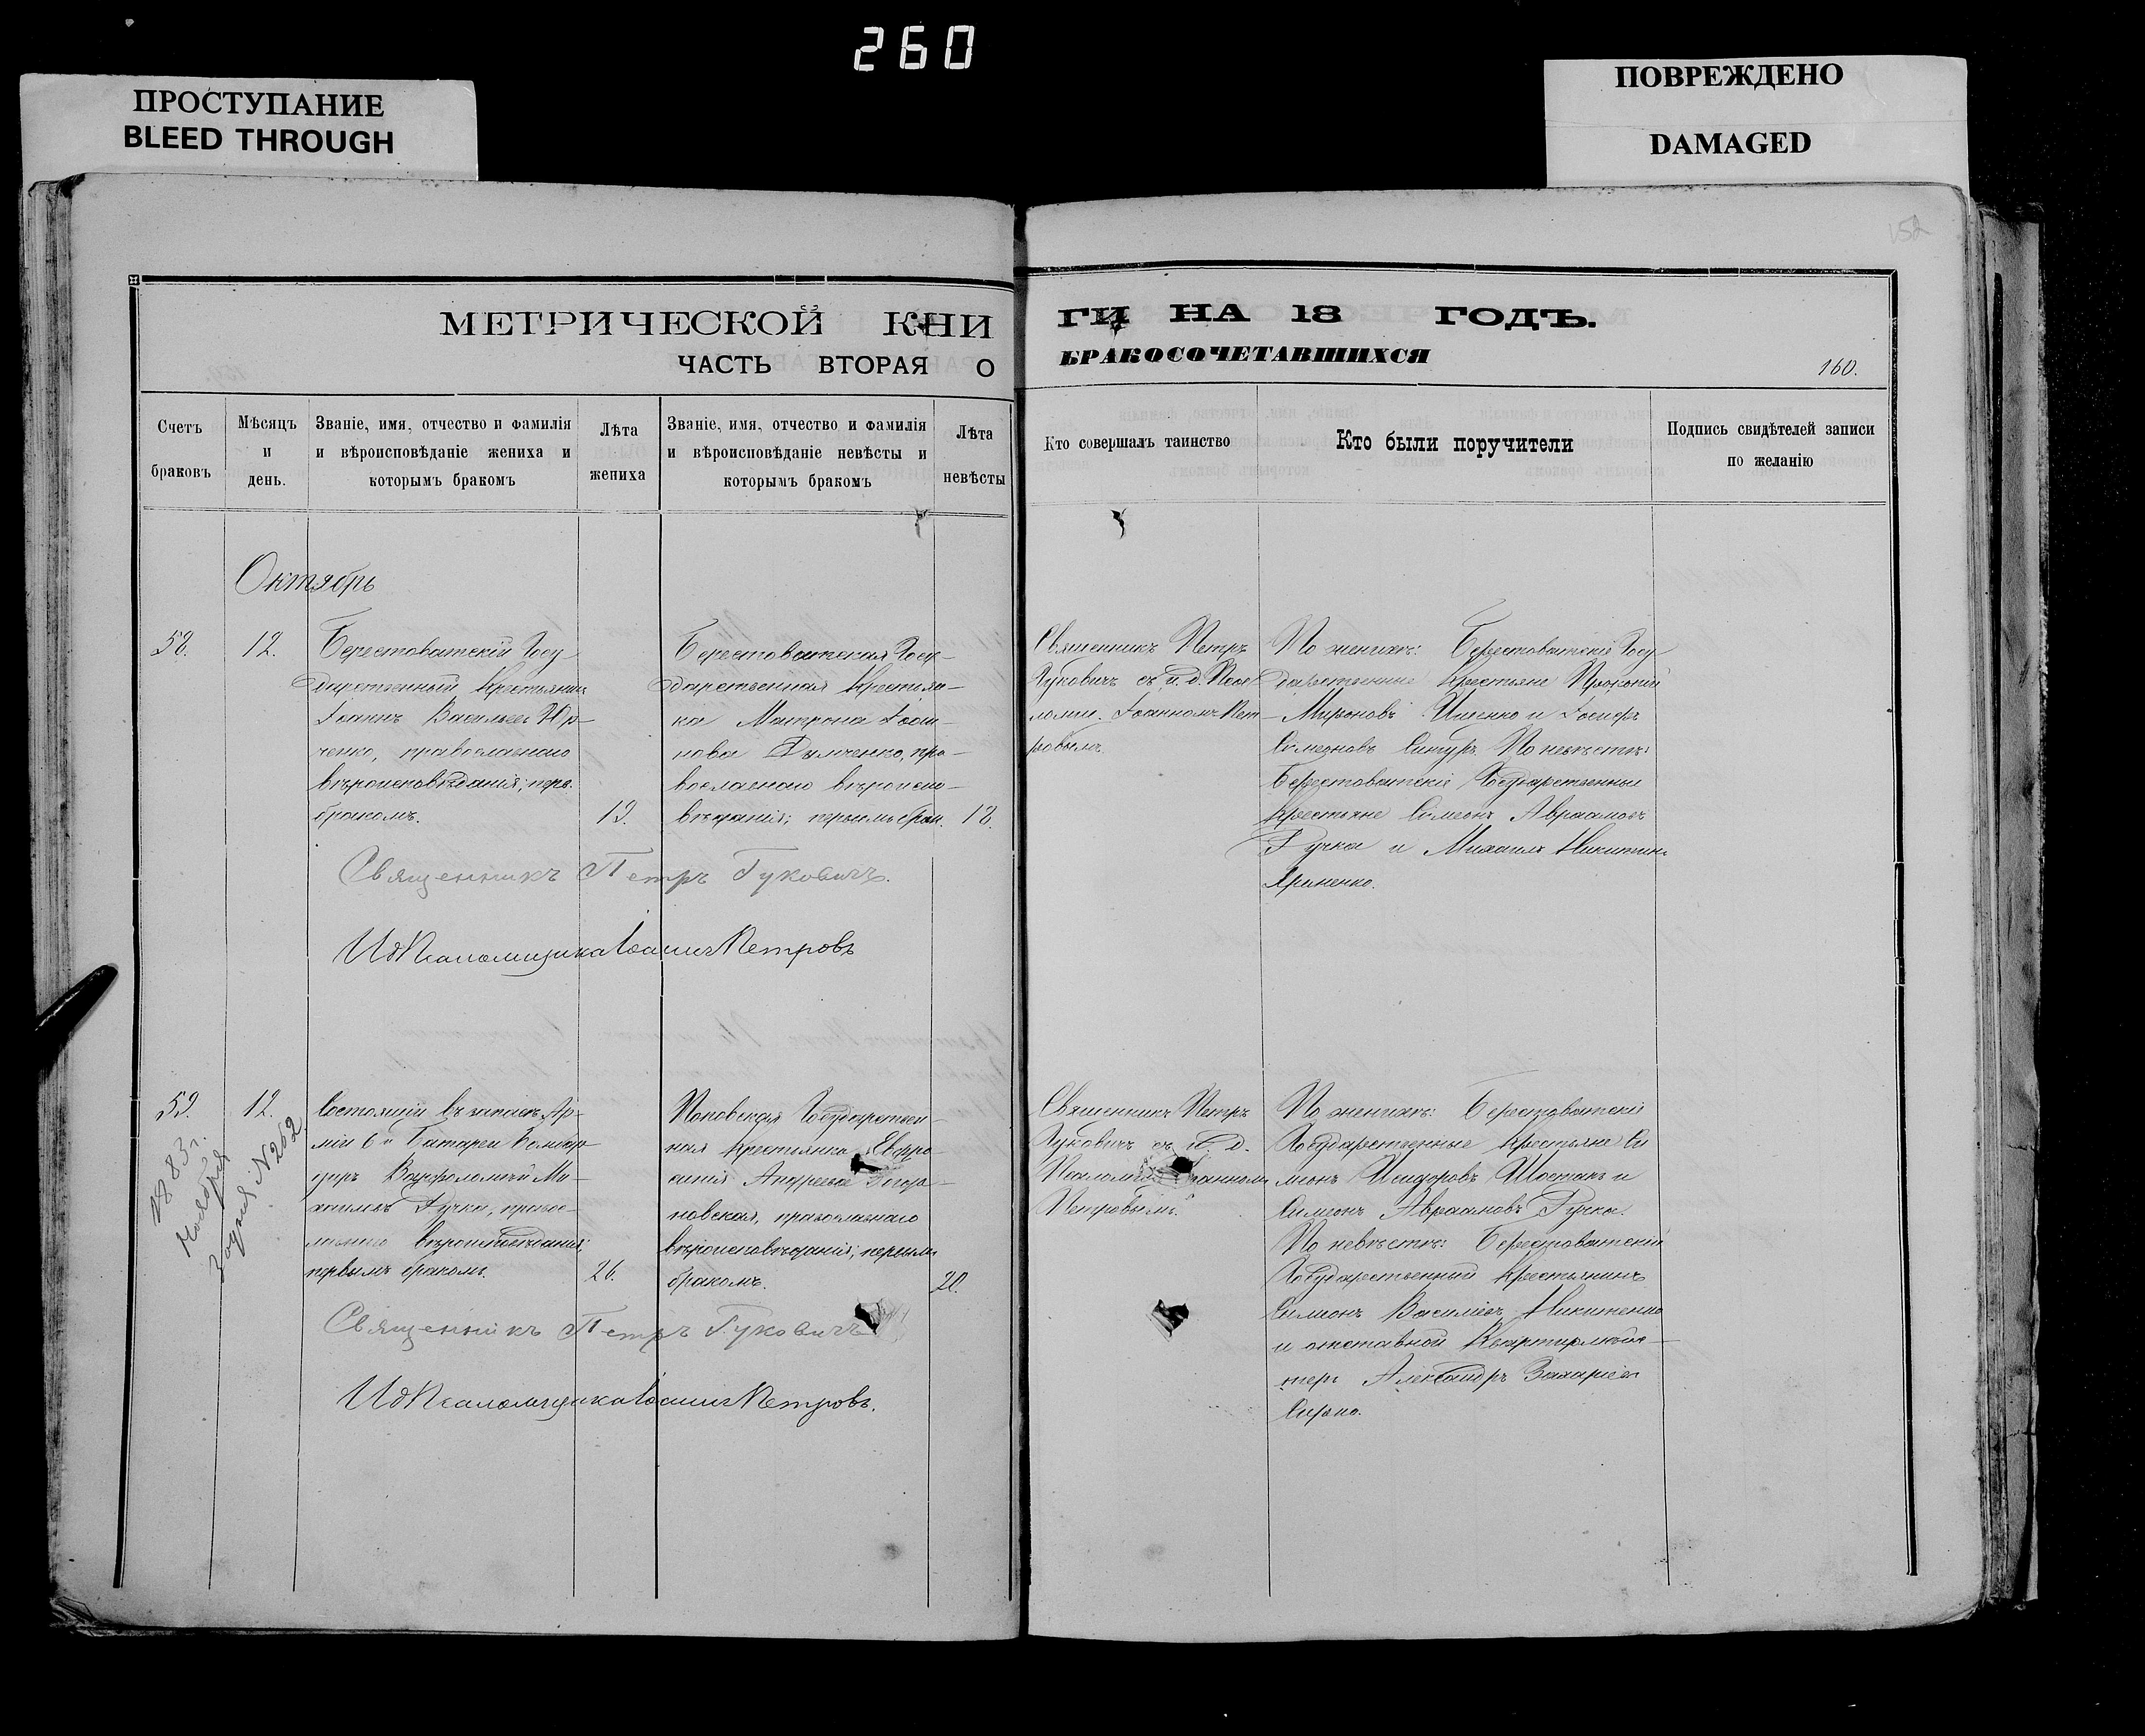 260
ПРОСТУПАНИЕ
BLEED THROUGH
ПОВРЕЖДЕНО
DAMAGED
152
МЕТРИЧЕСКОЙ КНИ
ЧАСТЬ ВТОРАЯ О
ГИ НА 18 ГОДЪ.
БРАКОСОЧЕТАВШИХСЯ
160.
Счетъ
браковъ
Мѣсяцъ
и
день.
Званіе, имя, отчество и фамилія
и вѣроисповѣданіе жениха и
которымъ бракомъ
Лѣта
жениха
Званіе, имя, отчество и фамилія
и вѣроисповѣданіе невѣсты и
которымъ бракомъ
Лѣта
невѣсты
Кто совершалъ таинство
Кто были поручители
Подпись свидѣтелей записи
по желанію
Октябрь
58.
12.
Берестоватскій Госу-
дарственный крестьянинъ
Іоаннъ Васильевъ Юр-
ченко, православнаго
вѣроисповѣданія; перв.
бракомъ.
19.
Берестоватская Госу-
дарственная крестьян-
ка Матрона Іоан-
нова, пра-
вославнаго вѣроиспо-
вѣданія; первымъ брак.
18.
Священникъ Петръ
Гуковичъ съ и. д. Псал-
ломщ. Іоанномъ Пет-
ровымъ.
По женихѣ: Берестоватскіе Госу-
дарственные крестьяне Прокопій
Мироновъ Ищенко и Іосифъ
Симеоновъ. По невѣстѣ:
Берестоватскіе Государственные
крестьяне Симеонъ Авраамовъ
Гучка и Михаилъ Никитинъ
Яриненко.
Священникъ Петръ Гуковичъ.
И д Псаломщика Іоаннъ Петровъ
59.
12.
1883 г.
Ноября
2 № 262
Состоящій въ запасѣ Ар-
міи 6й Батареи Бомбар-
диръ Варфоломей Ми-
хаиловъ Гучка, правос-
лавнаго вѣроисповѣданія;
первымъ бракомъ.
26.
Поповская Государствен-
ная крестьянка Евфро-
синія Андреева
новская, православнаго
вѣроисповѣданія; первымъ
бракомъ.
20.
Священникъ Петръ
Гуковичъ съ и. д.
Псаломщ. Іоанномъ
Петровымъ.
По женихѣ: Берестоватскіе
Государственные крестьяне Си
меонъ Исидоровъ Шостакъ и
Симеонъ Авраамовъ Гучка.
По невѣстѣ: Берестоватскій
Государственный крестьянинъ
Симеонъ Василіевъ Никитенко
и отставной Квартирмейс-
теръ Александръ Захаріевъ
Сирко.
Священникъ Петръ Гуковичъ
И д Псаломщика Іоаннъ Петровъ.